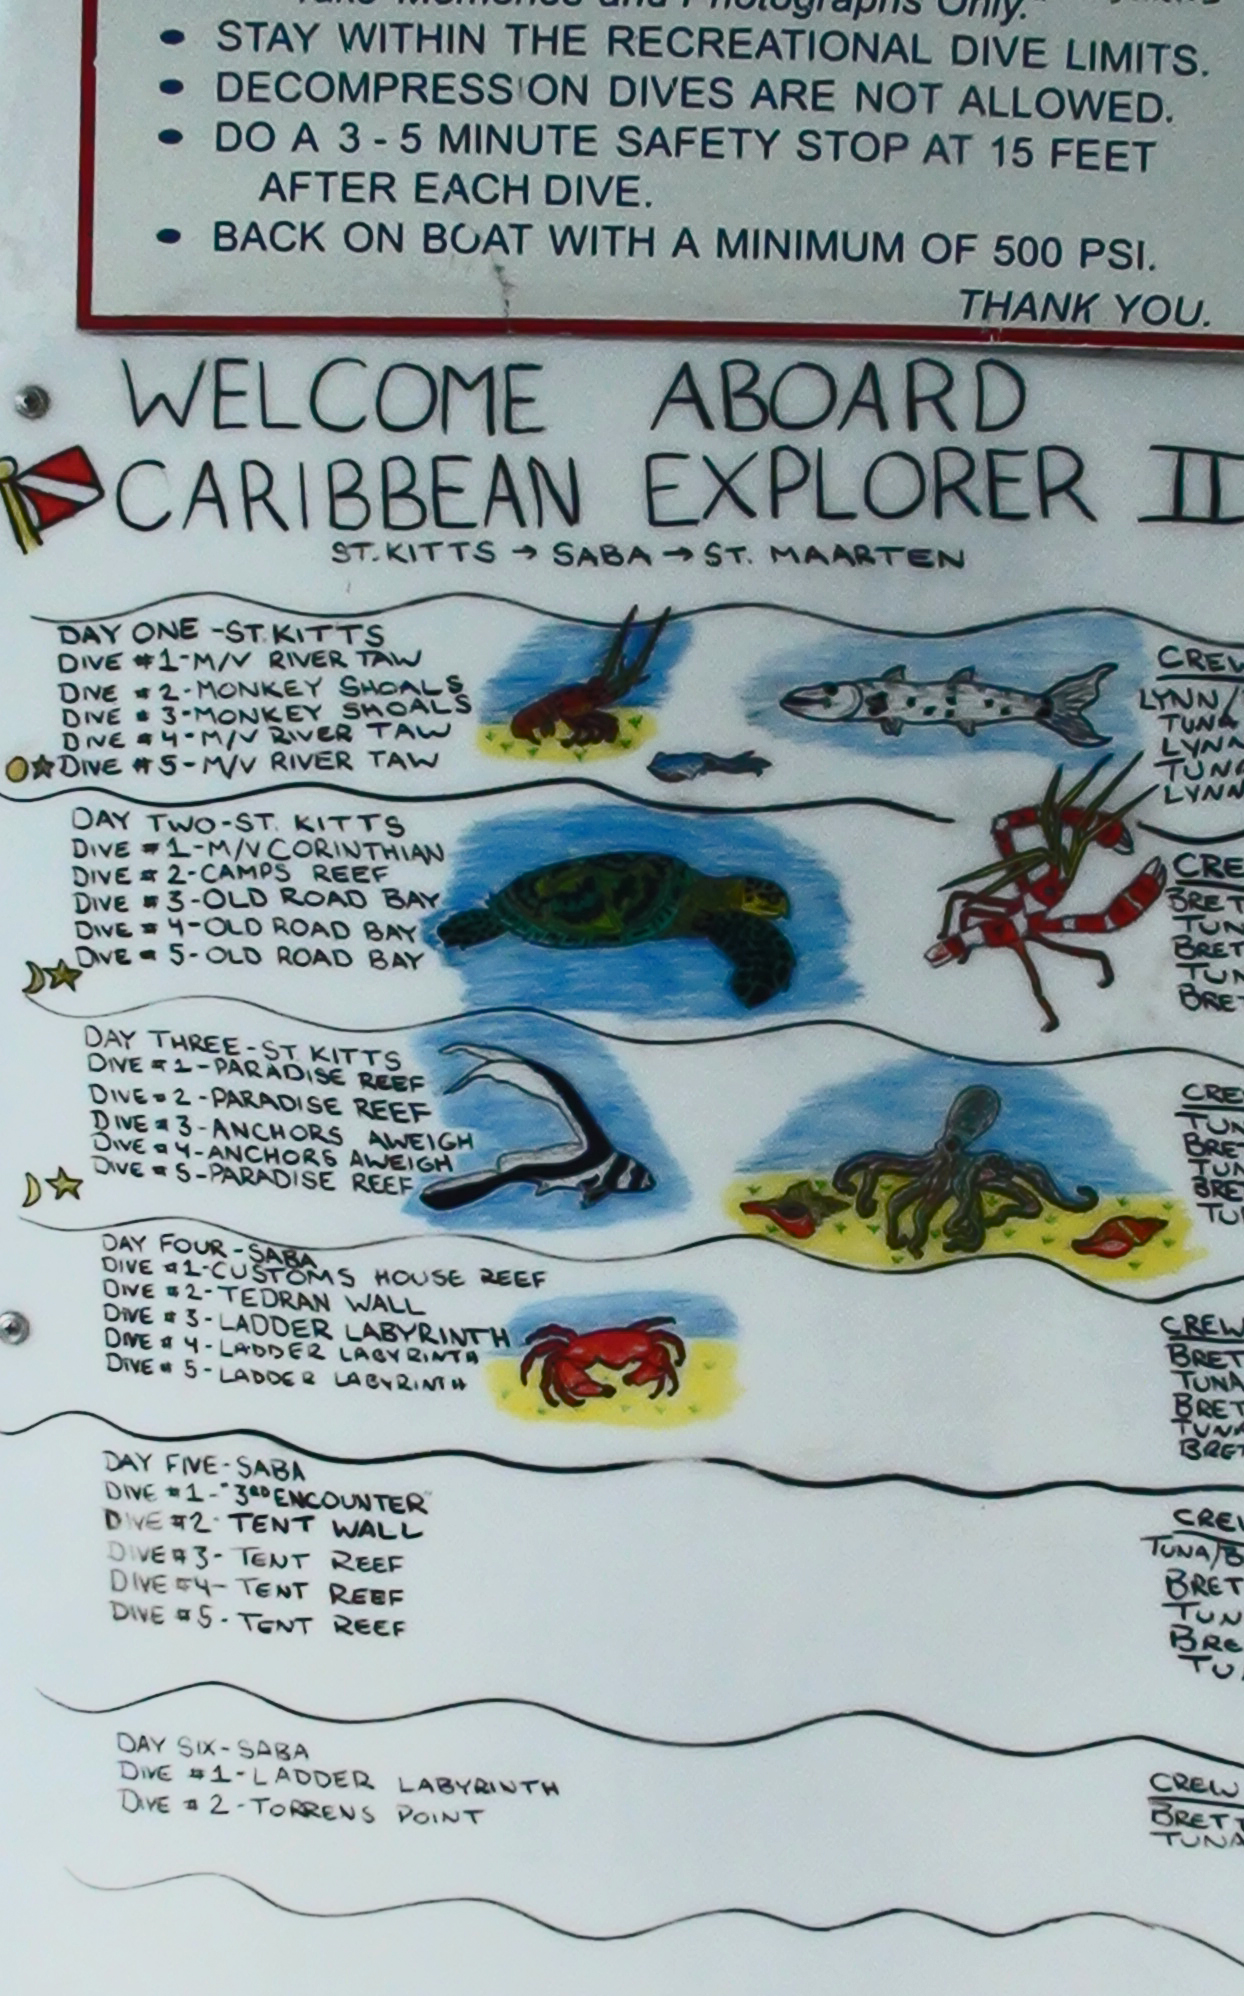 Take Memories and Photographs Only."
• STAY WITHIN THE RECREATIONAL DIVE LIMITS.
• DECOMPRESSION DIVES ARE NOT ALLOWED.
• DO A 3 - 5 MINUTE SAFETY STOP AT 15 FEET
AFTER EACH DIVE.
• BACK ON BOAT WITH A MINIMUM OF 500 PSI.
THANK YOU.
WELCOME ABOARD
CARIBBEAN EXPLORER II
ST. KITTS → SABA → ST. MAARTEN
DAY ONE -ST. KITTS
DIVE #1-M/V RIVER TAW
DIVE #2-MONKEY SHOALS
DIVE #3-MONKEY SHOALS
DIVE #4-M/V RIVER TAW
DIVE #5-M/V RIVER TAW
CREW
LYNN/
TUNA
LYNN
TUNA
LYNN
DAY TWO-ST. KITTS
DIVE #1-M/V CORINTHIAN
DIVE #2-CAMPS REEF
DIVE #3-OLD ROAD BAY
DIVE #4-OLD ROAD BAY
DIVE #5-OLD ROAD BAY
CRE
BRET
TUN
BRET
TUN
BRE
DAY THREE-ST. KITTS
DIVE #1-PARADISE REEF
DIVE #2-PARADISE REEF
DIVE #3-ANCHORS AWEIGH
DIVE #4-ANCHORS AWEIGH
DIVE #5-PARADISE REEF
CRE
TUN
BRE
TUN
BRE
TU
DAY FOUR-SABA
DIVE #1-CUSTOMS HOUSE REEF
DIVE #2-TEDRAN WALL
DIVE #3-LADDER LABYRINTH
DIVE #4-LADDER LABYRINTH
DIVE #5-LADDER LABYRINTH
CREW
BRET
TUNA
BRET
TUNA
BRET
DAY FIVE-SABA
DIVE #1-"3RD ENCOUNTER"
DIVE #2-TENT WALL
DIVE #3-TENT REEF
DIVE #4-TENT REEF
DIVE #5-TENT REEF
CREW
TUNA/B
BRET
TUN
BRE
TU
DAY SIX-SABA
DIVE #1-LADDER LABYRINTH
DIVE #2-TORRENS POINT
CREW
BRETT
TUNA